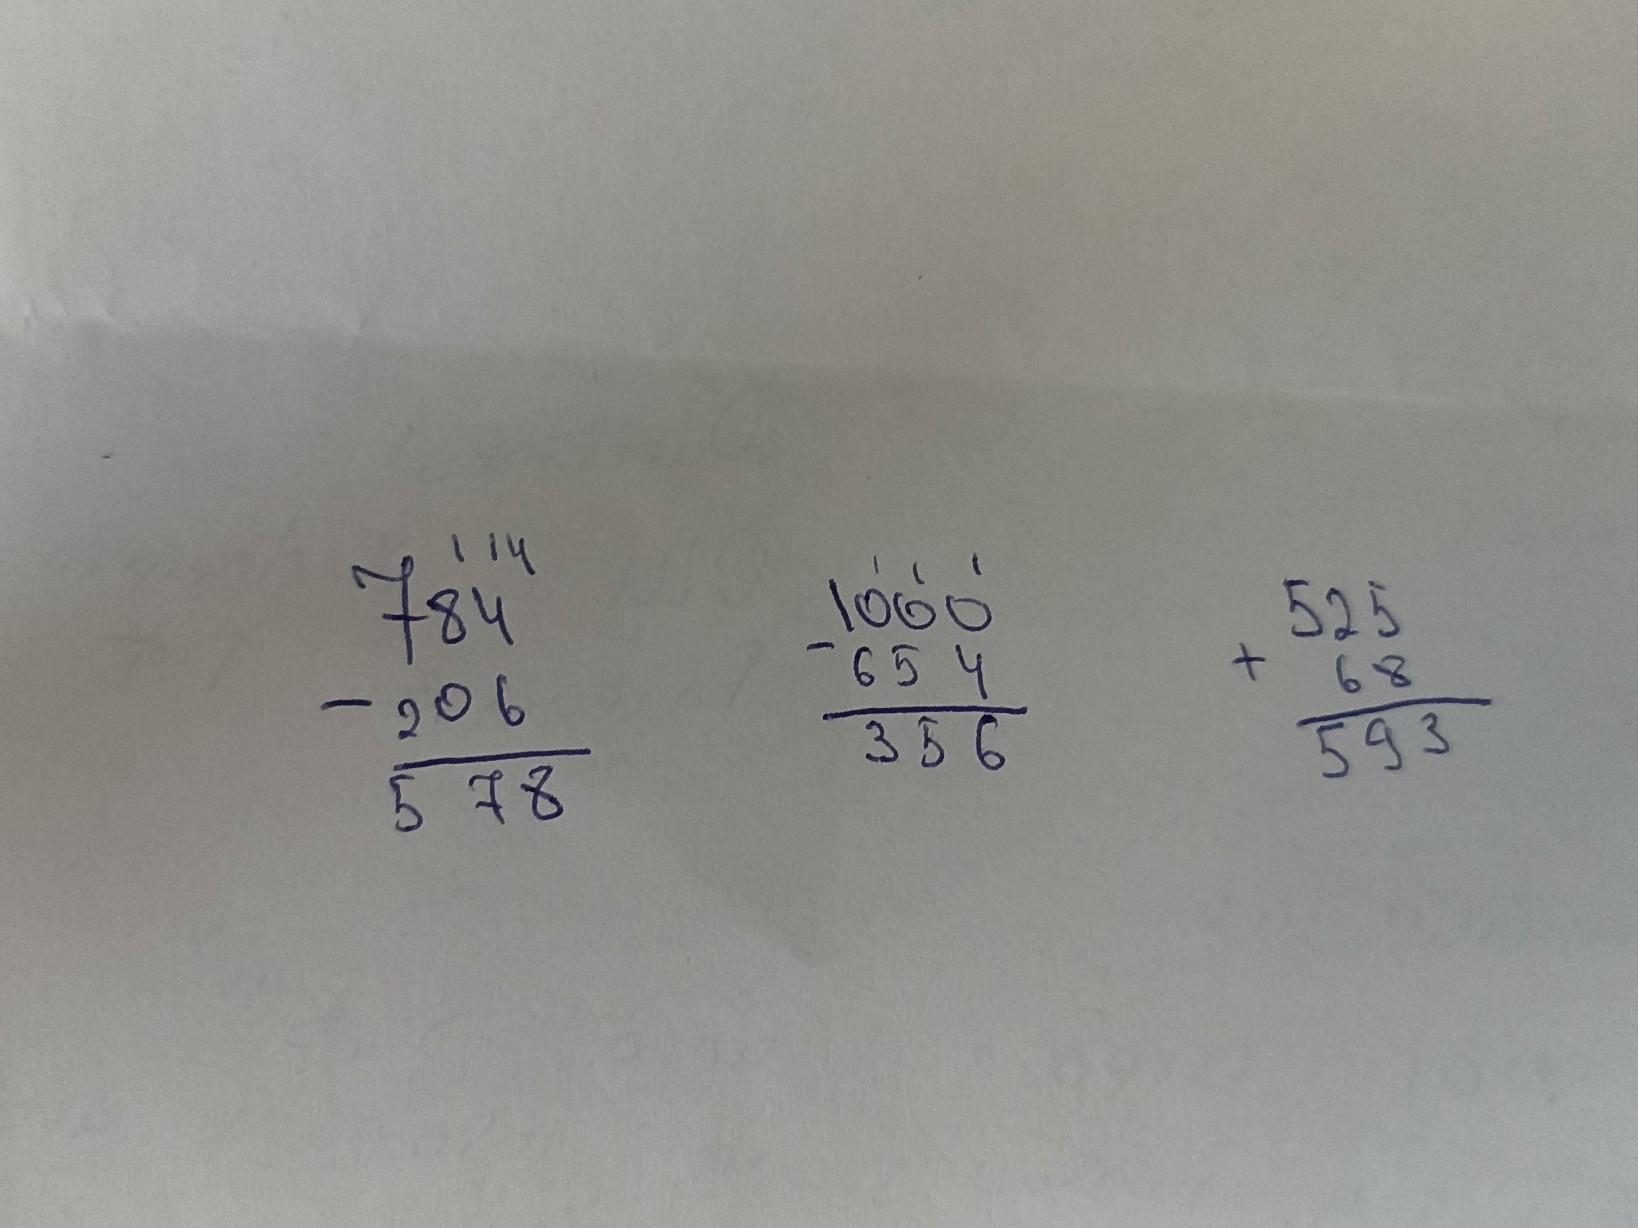 1 14
784
- 206
578
1 1 1
1000
- 654
356
525
+ 68
593